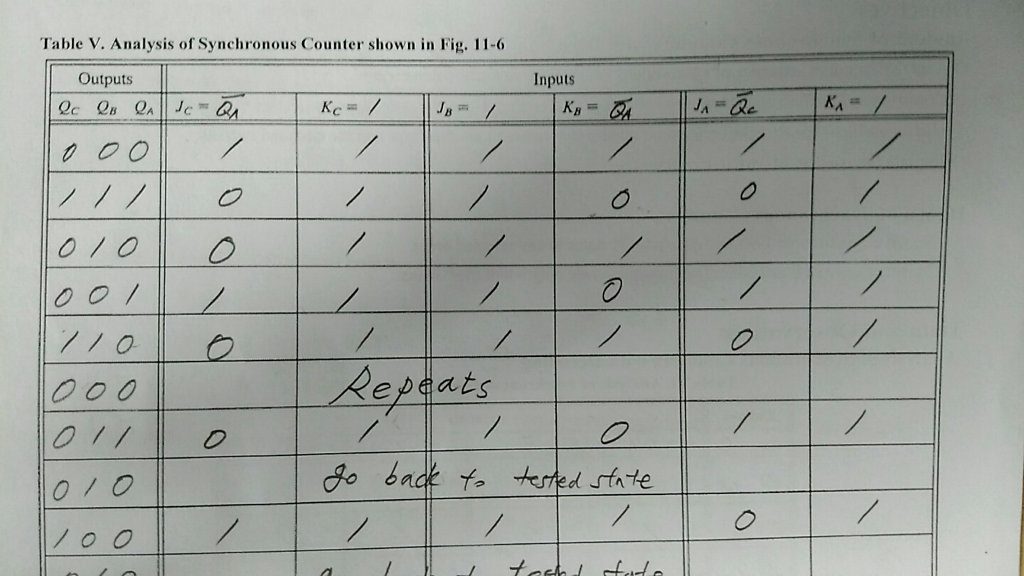 Table V. Analysis of Synchronous Counter shown in Fig. 11-6
Outputs Inputs
Q_C Q_B Q_A J_C = Q̅_A K_C = 1 J_B = 1 K_B = Q̅_A J_A = Q̅_C K_A = 1
0 0 0 1 1 1 1 1 1
1 1 1 0 1 1 0 0 1
0 1 0 0 1 1 1 1 1
0 0 1 1 1 1 0 1 1
1 1 0 0 1 1 1 0 1
0 0 0 Repeats
0 1 1 0 1 1 0 1 1
0 1 0 go back to tested state
1 0 0 1 1 1 1 0 1
0 1 0 tested state